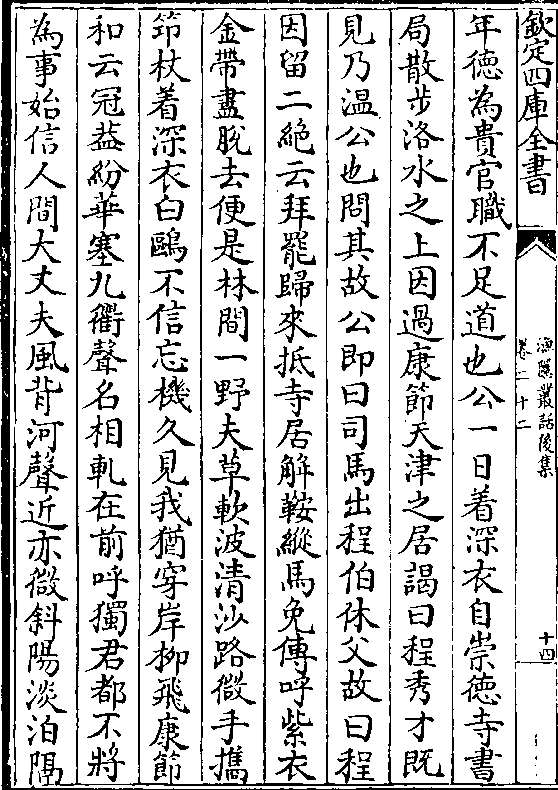 欽定四庫全書
漁隱叢話後集
卷二十二
十四
年德為貴官職不足道也公一日着深衣自崇德寺書
局散步洛水之上因過康節天津之居謁曰程秀才既
見乃温公也問其故公即曰司馬出程伯休父故曰程
因留二絶云拜罷歸來抵寺居解鞍縱馬免傳呼紫衣
金帶盡脱去便是林間一野夫草軟波清沙路微手攜
笻杖着深衣白鷗不信忘機久見我猶穿岸柳飛康節
和云冠葢紛華塞九衢聲名相軋在前呼獨君都不將
為事始信人間大丈夫風背河聲近亦微斜陽淡泊隔